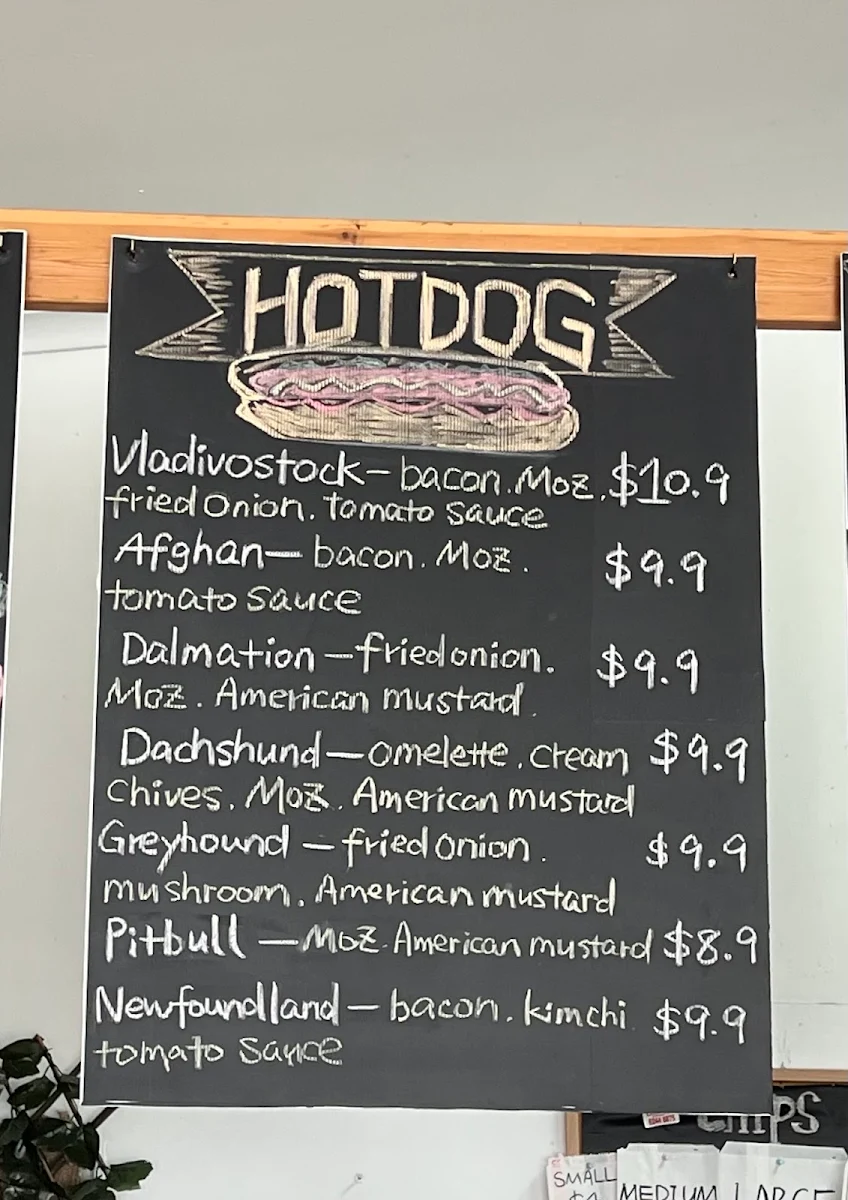 HOTDOG
Vladivostock – bacon. Moz. $10.9
fried onion. tomato sauce
Afghan – bacon. Moz. $9.9
tomato sauce
Dalmation – fried onion. $9.9
Moz. American mustard.
Dachshund – omelette. cream $9.9
chives. Moz. American mustard
Greyhound – fried onion. $9.9
mushroom. American mustard
Pitbull – Moz. American mustard $8.9
Newfoundland – bacon. kimchi $9.9
tomato sauce
CHIPS
SMALL MEDIUM LARGE